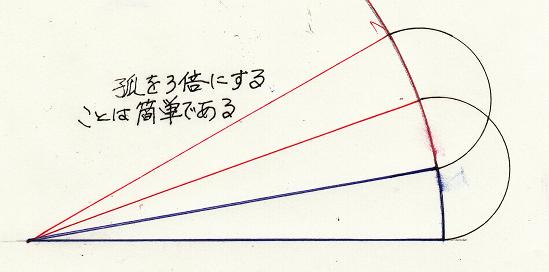 孤を3倍にする
ことは簡単である